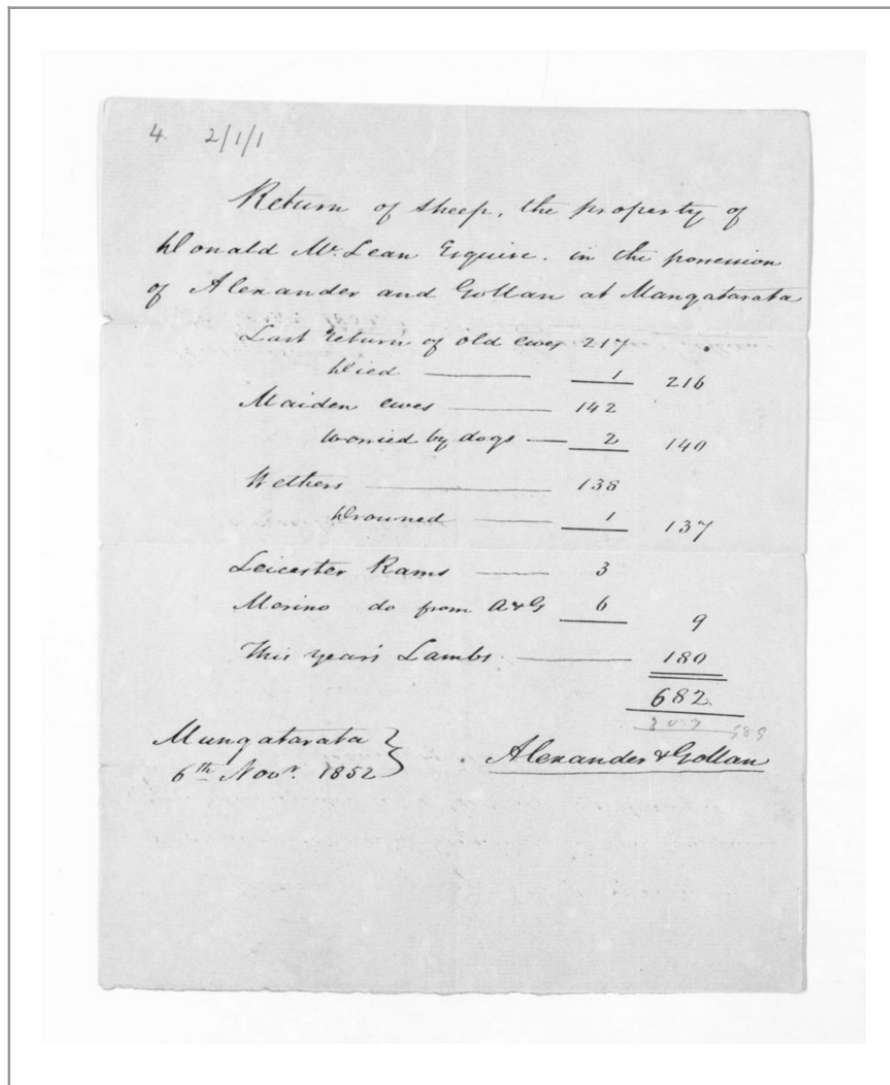 4. 2/1/1
Return of sheep, the property of
Donald McLean Esquire. in the possession
of Alexander and Gollan at Mangatarata
Last return of old ewes 217
Died 1 216
Maiden ewes 142
Worried by dogs 2 140
Wethers 138
Drowned 1 137
Leicester Rams 3
Merino do from A&G 6 9
This year's Lambs. 180
682.
Mungatarata
6th Novr. 1852
Alexander & Gollan